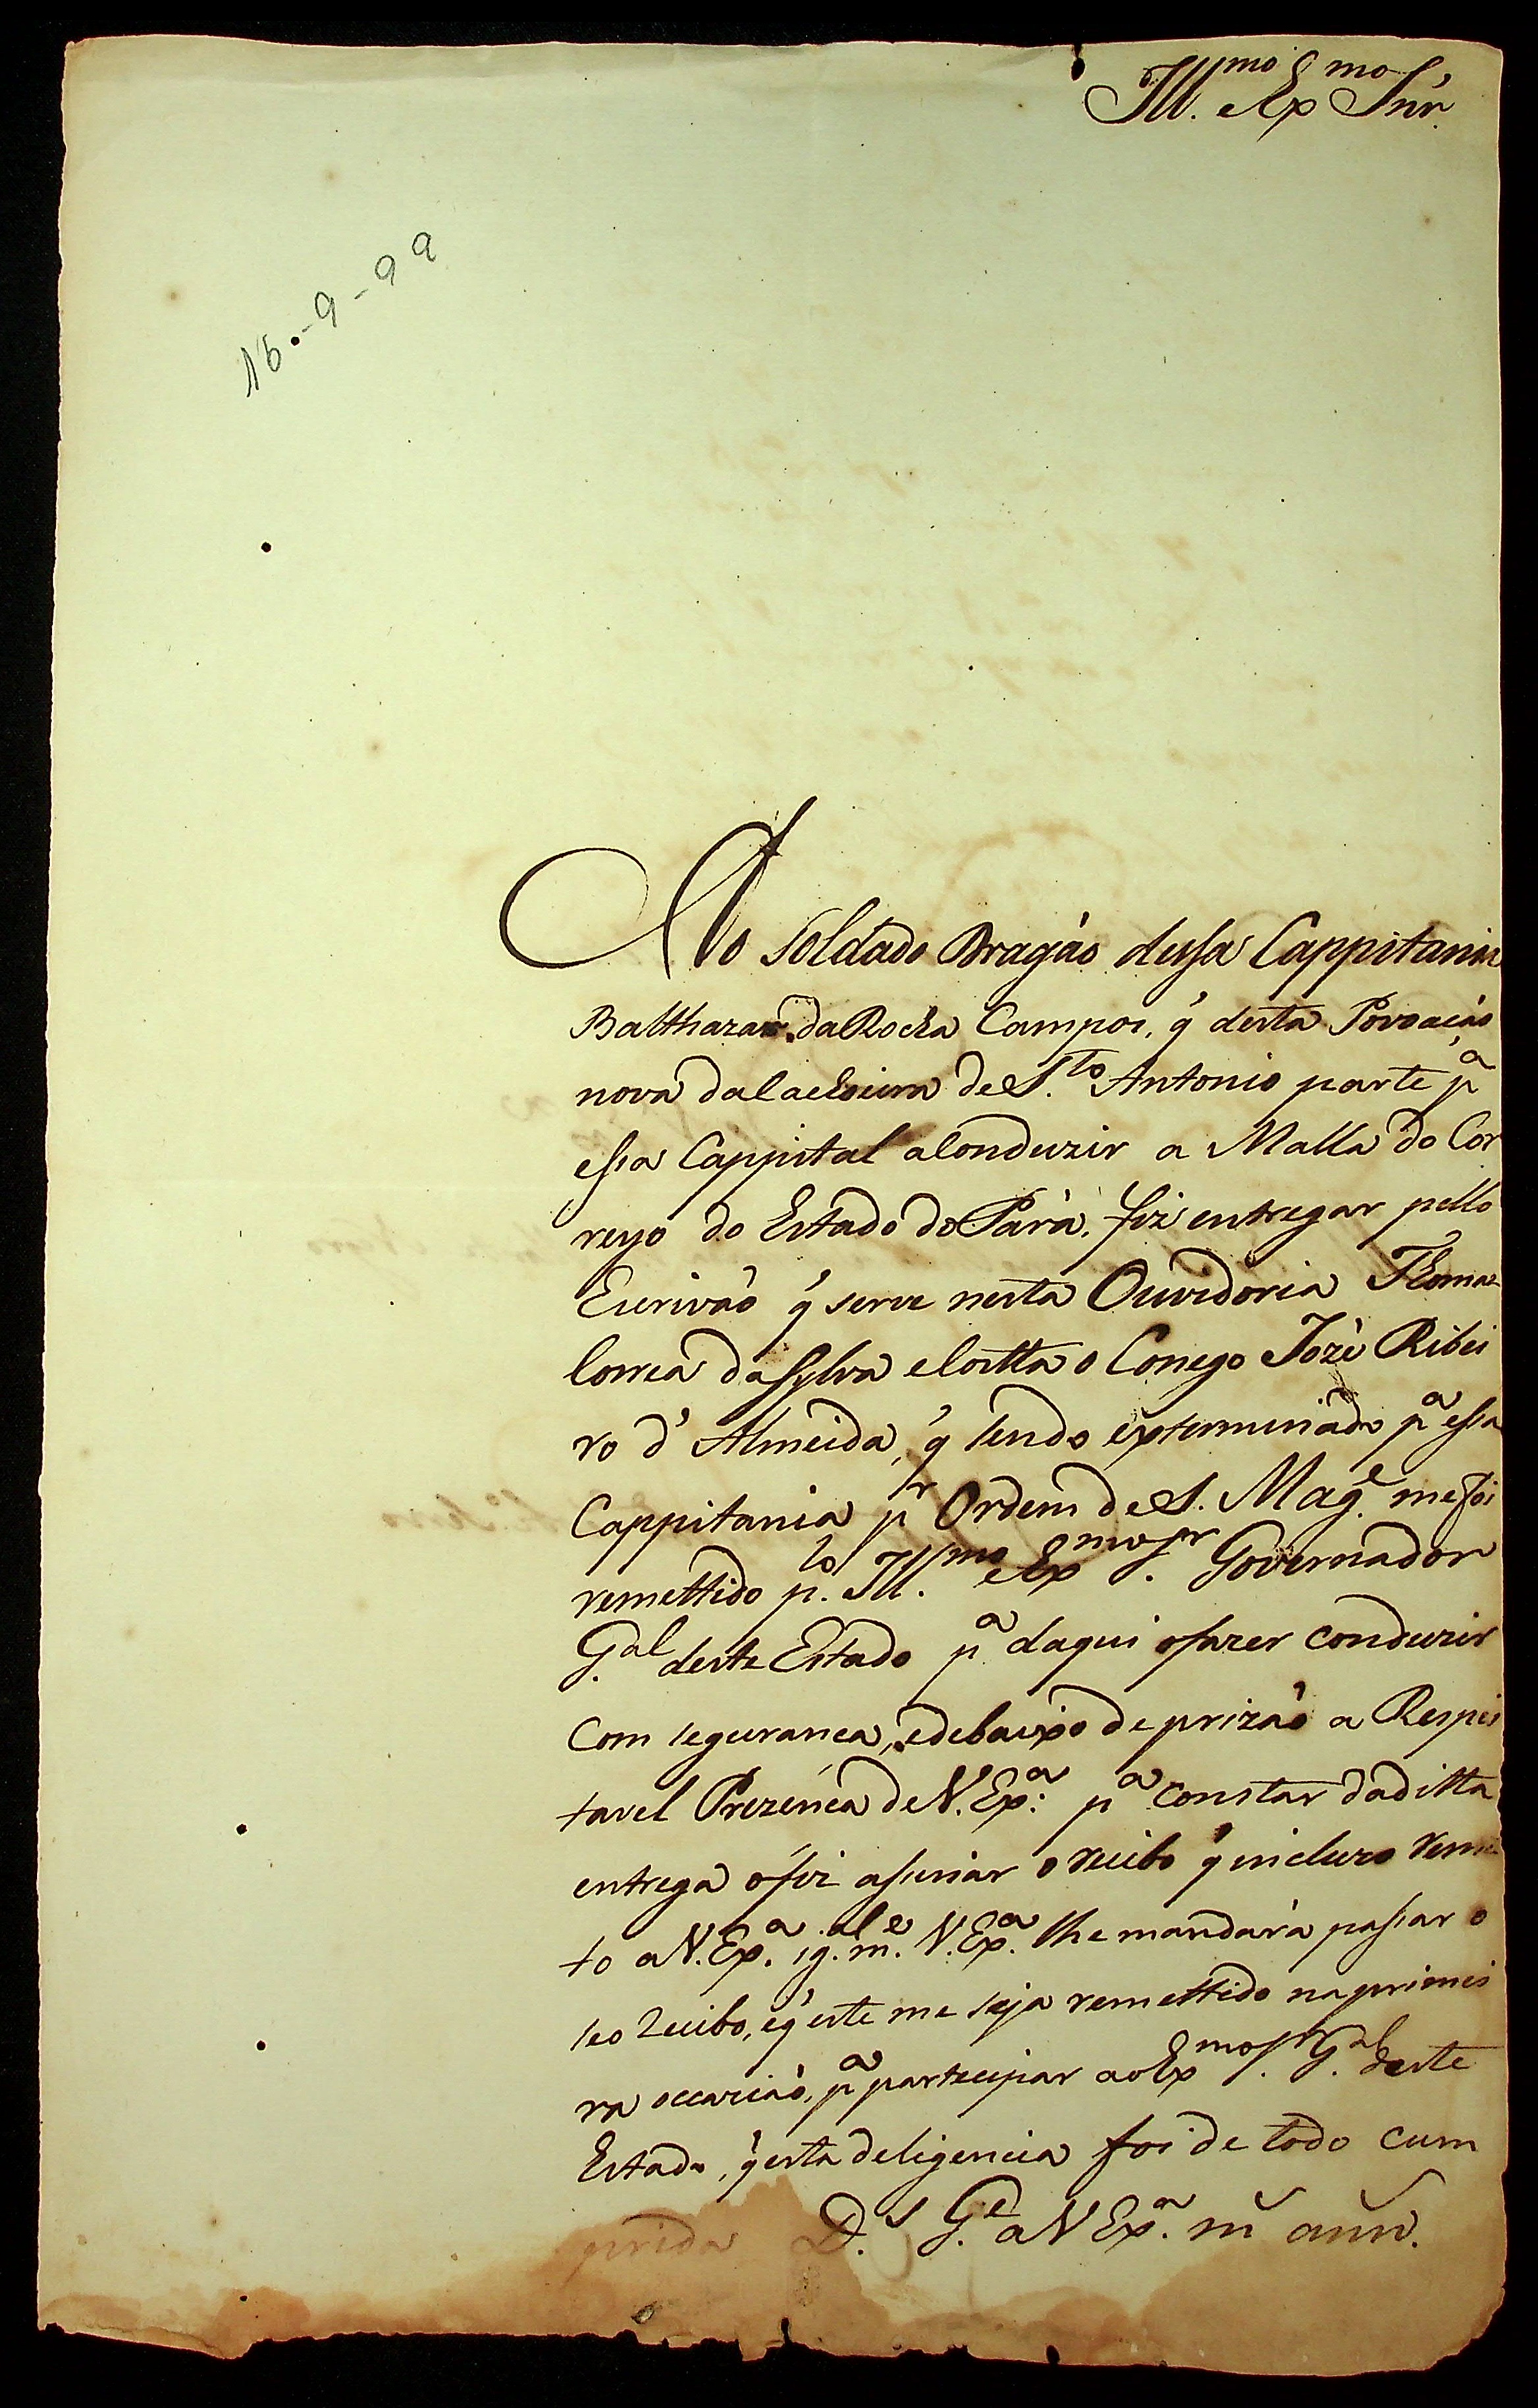 Ill.mo e Ex.mo Snr.
15.-9-99
Ao Soldado Dragão dessa Cappitania
Balthazar da Rocha Campos, q̃ desta Povoação
nova da Caxoeira de S.to Antonio parte p.a
essa Cappital a Conduzir a Malla do Cor
reyo do Estado do Parà, fiz entregar pello
Escrivão q̃ serve nesta Ouvidoria Thomaz
Correa da Sylva e Costta o Conego Jozè Ribei
ro d' Almeida, q̃ sendo exterminado p.a essa
Cappitania p.r Ordem de S. Mag.e me foi
remettido p.lo Ill.mo e Ex.mo S.r Governador
G.al deste Estado p.a daqui o fazer conduzir
Com segurança, e debaixo de prizão a Respei
tavel Prezença de V. Ex.a: p.a constar da ditta
entrega o fiz assinar o recibo q̃ incluzo reme
to a V. Ex.a, ig.al m.e V. Ex.a lhe mandarà passar o
seo recibo, e q̃ este me seja remettido na primei
ra occazião, p.a participar ao Ex.mo S.r G.al deste
Estado, q̃ esta deligencia foi de todo cum
prida D.s G.e a V Ex.a m.s ann.s